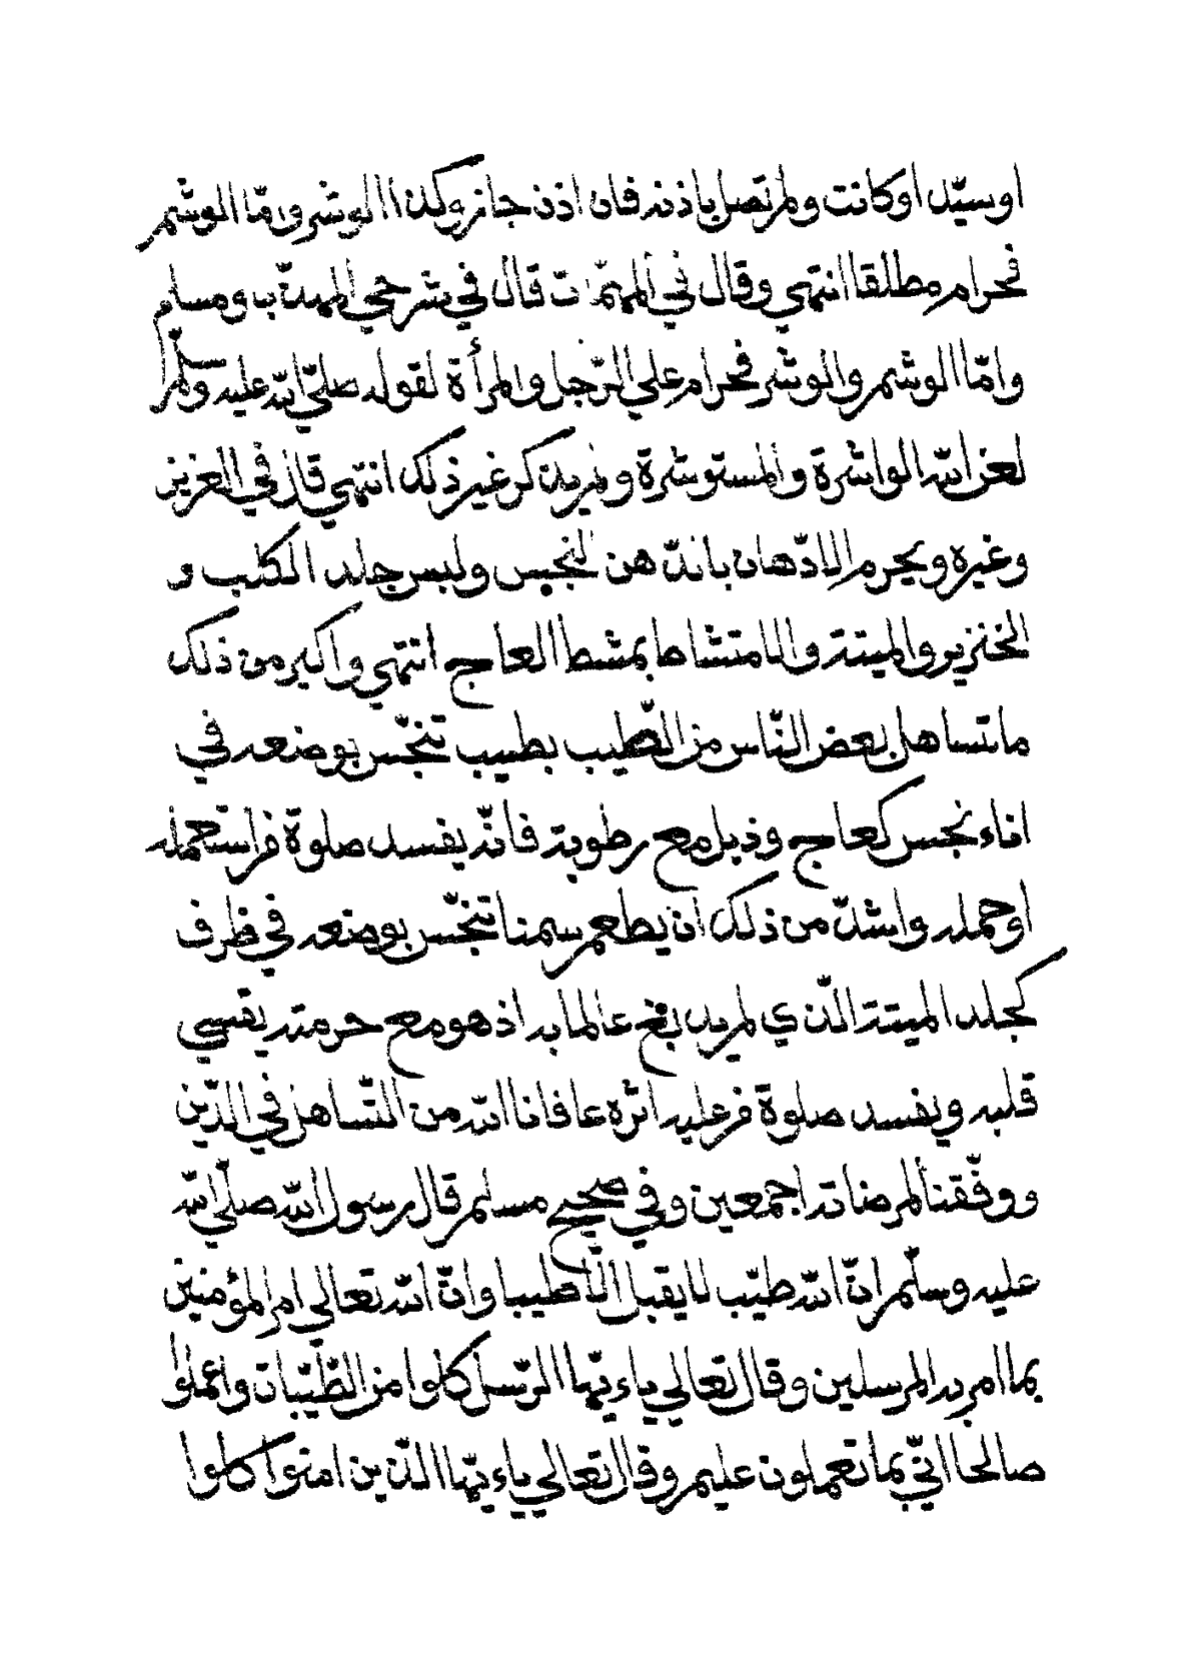 او سيّد او كانت ولم تصل باذنه فان اذن جاز وكذا الوشر وامّا الوشم
فحرام مطلقا انتهي وقال في المهمّات قال في شرحي المهذّب ومسلم
وامّا الوشم والوشر فحرام علي الرّجل والمرأة لقوله صلّي الله عليه وسلّم
لعن الله الواشرة والمستوشرة ولم يذكر غير ذلك انتهي قال في العزيز
وغيره ويحرم الادّهان بالدّهن النجس ولبس جلد الكلب و
الخنزير والميتة والامتشاط بمشط العاج انتهي واكبر من ذلك
ما تساهل بعض النّاس من الطّيب بطيب تنجّس بوضعه في
اناء نجس كعاج وذبل مع رطوبة فانّه يفسد صلوة من استعمله
او حمله واشدّ من ذلك ان يطعم سمنا تنجّس بوضعه في ظرف
كجلد الميتة الّذي لم يدبغ عالما به اذ هو مع حرمته يقسي
قلبه ويفسد صلوة من عليه اثره عافانا الله من التّساهل في الدّين
ووفّقنا لمرضاته اجمعين وفي صحيح مسلم قال رسول الله صلّي الله
عليه وسلّم انّ الله طيّب لا يقبل الّا طيبا وانّ الله تعالي امر المؤمنين
بما امر به المرسلين وقال تعالي ياءيّها الرّسل كلوا من الطّيّبات واعملوا
صالحا انّي بما تعملون عليم وقال تعالي ياءيّها الّذين امنوا كلوا